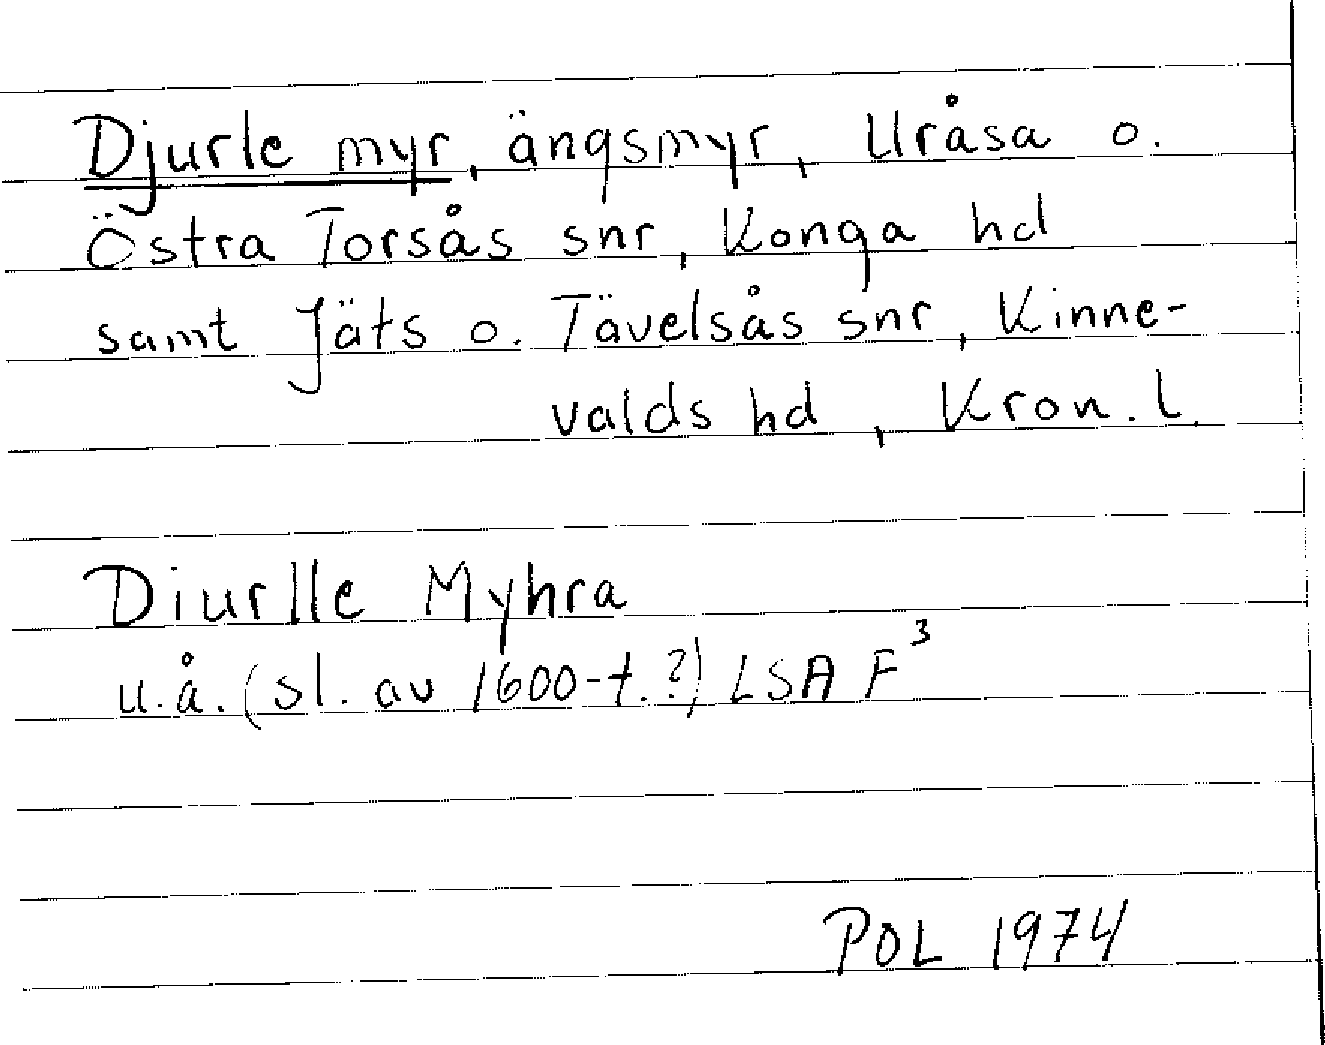 Djurle myr, ängsmyr, Uråsa o.
Östra Torsås snr, Konga hd
samt Jäts o. Tävelsås snr, Kinne-
valds hd, Kron. l.
Diurlle Myhra
u.å. (sl. av 1600-t.?) LSA F³
POL 1974